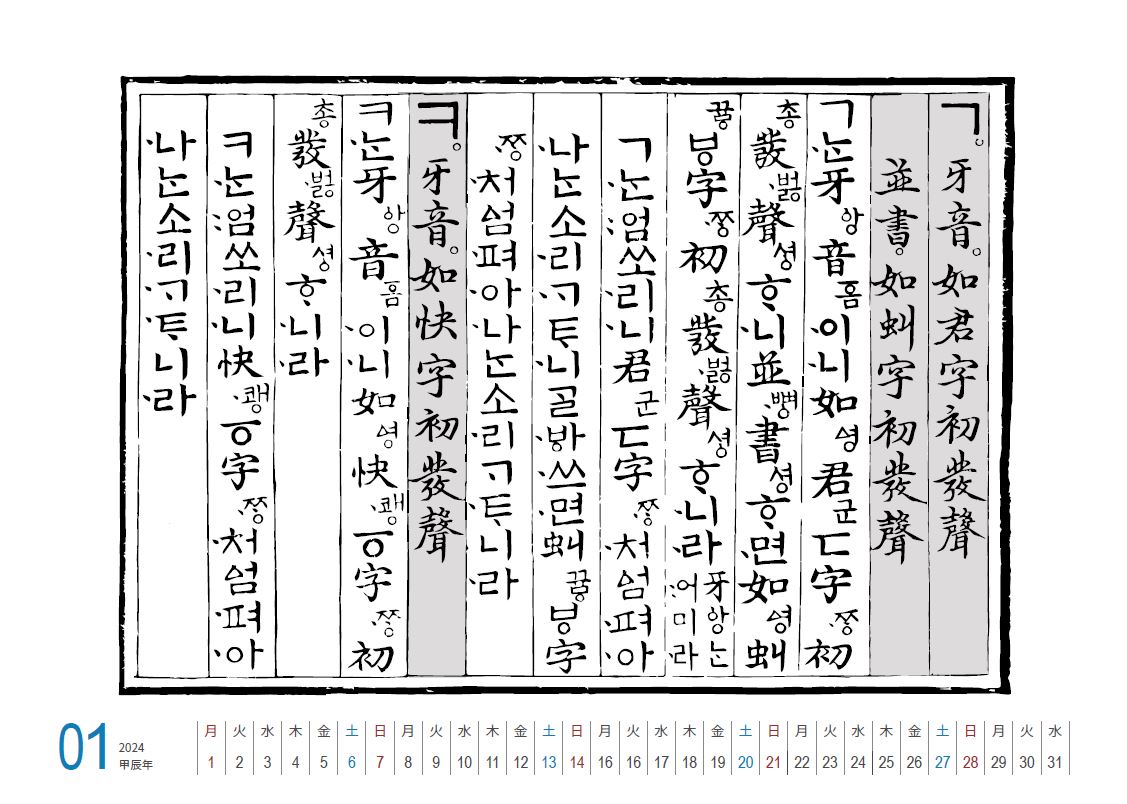 ㄱ。牙音。如君字初發聲
並書。如虯字初發聲
ㄱ·ᄂᆞᆫ牙ᅌᅡᆼ音ᅙᅳᆷ·이·니如ᅀᅧᆼ君군ㄷ字·ᄍᆞᆼ初
총發·버ᇙ聲셩·ᄒᆞ·니並·뼝書셩·ᄒᆞ·면如ᅀᅧᆼ虯
뀨ᇢㅸ字·ᄍᆞᆼ初총發·버ᇙ聲셩·ᄒᆞ·니·라牙ᅌᅡᆼᄂᆞᆫ·어미·라
ㄱ·ᄂᆞᆫ:엄쏘·리·니君군ㄷ字·ᄍᆞᆼ·처ᅀᅥᆷ·펴·아
·나ᄂᆞᆫ소·리·ᄀᆞ·ᄐᆞ·니ᄀᆞᆯ·ᄫᅡ·쓰·면虯뀨ᇢㅸ字
·ᄍᆞᆼ·처ᅀᅥᆷ·펴·아·나ᄂᆞᆫ소·리·ᄀᆞ·ᄐᆞ·니·라
ㅋ。牙音。如快字初發聲
ㅋ·ᄂᆞᆫ牙ᅌᅡᆼ音ᅙᅳᆷ·이·니如ᅀᅧᆼ快·쾡ㆆ字·ᄍᆞᆼ初
총發·버ᇙ聲셩·ᄒᆞ·니·라
ㅋ·ᄂᆞᆫ:엄쏘·리·니快·쾡ㆆ字·ᄍᆞᆼ·처ᅀᅥᆷ·펴·아
·나ᄂᆞᆫ소·리·ᄀᆞ·ᄐᆞ·니·라
01
2024
甲辰年
月 火 水 木 金 土 日 月 火 水 木 金 土 日 月 火 水 木 金 土 日 月 火 水 木 金 土 日 月 火 水
1 2 3 4 5 6 7 8 9 10 11 12 13 14 16 16 17 18 19 20 21 22 23 24 25 26 27 28 29 30 31